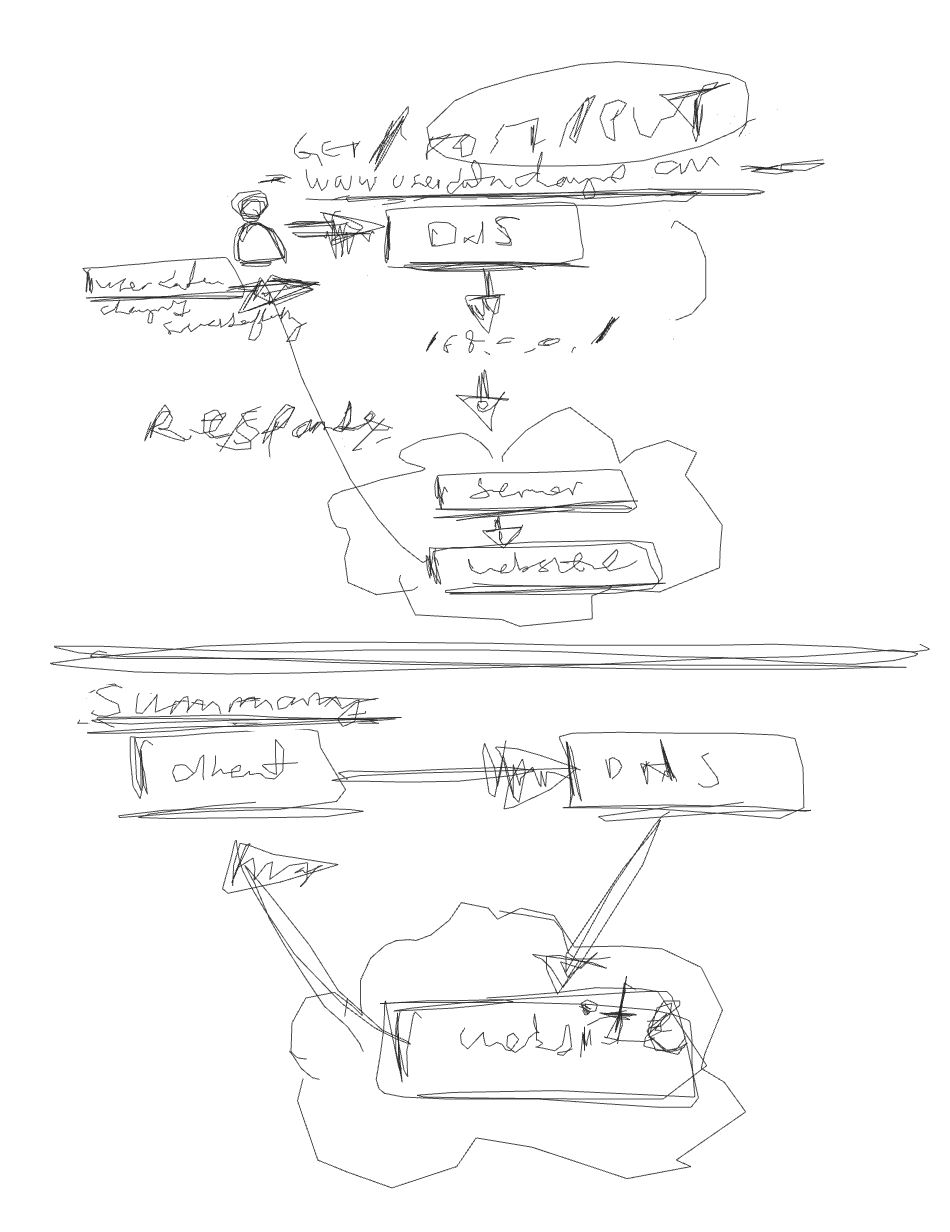 GET / POST / PUT
www userdatachange com
DNS
user data
change
successfully
168. - . 0 . 1
Response
Server
website
Summary
client
DNS
website